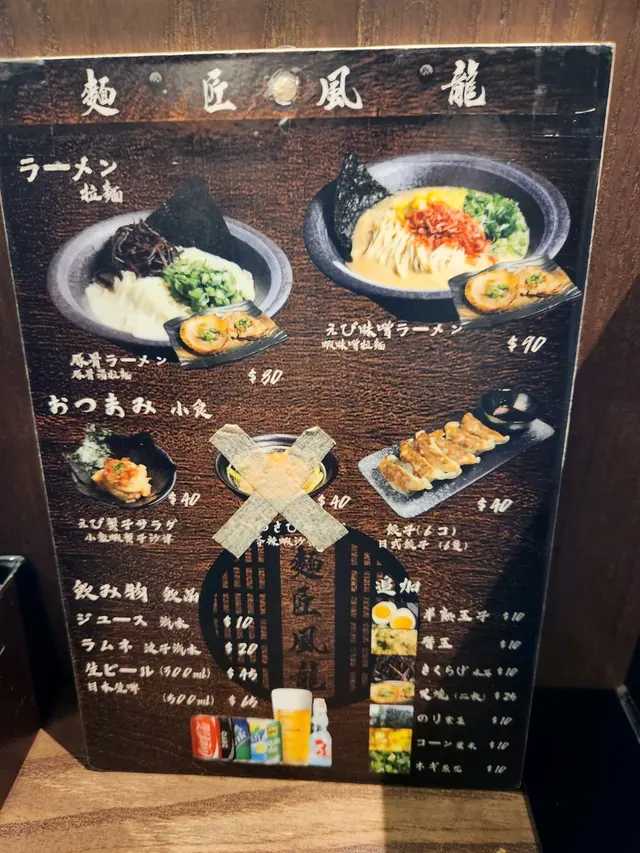 麵 匠 風 龍
ラーメン
拉麵
豚骨ラーメン
豚骨湯拉麵
$80
えび味噌ラーメン
蝦味噌拉麵
$90
おつまみ 小食
えび製子サラダ
$40
$40
餃子(6コ)
日式餃子 (6隻)
$40
麵匠風龍
飲み物 飲品
ジュース 汽水 $10
ラムネ 波子汽水 $20
生ビール (300ml) $45
日本生啤
(500ml) $65
追加
半熟玉子 $10
替玉 $10
きくらげ 木耳 $10
叉燒 (二枚) $20
のり 紫菜 $10
コーン 粟米 $10
ネギ 葱花 $10